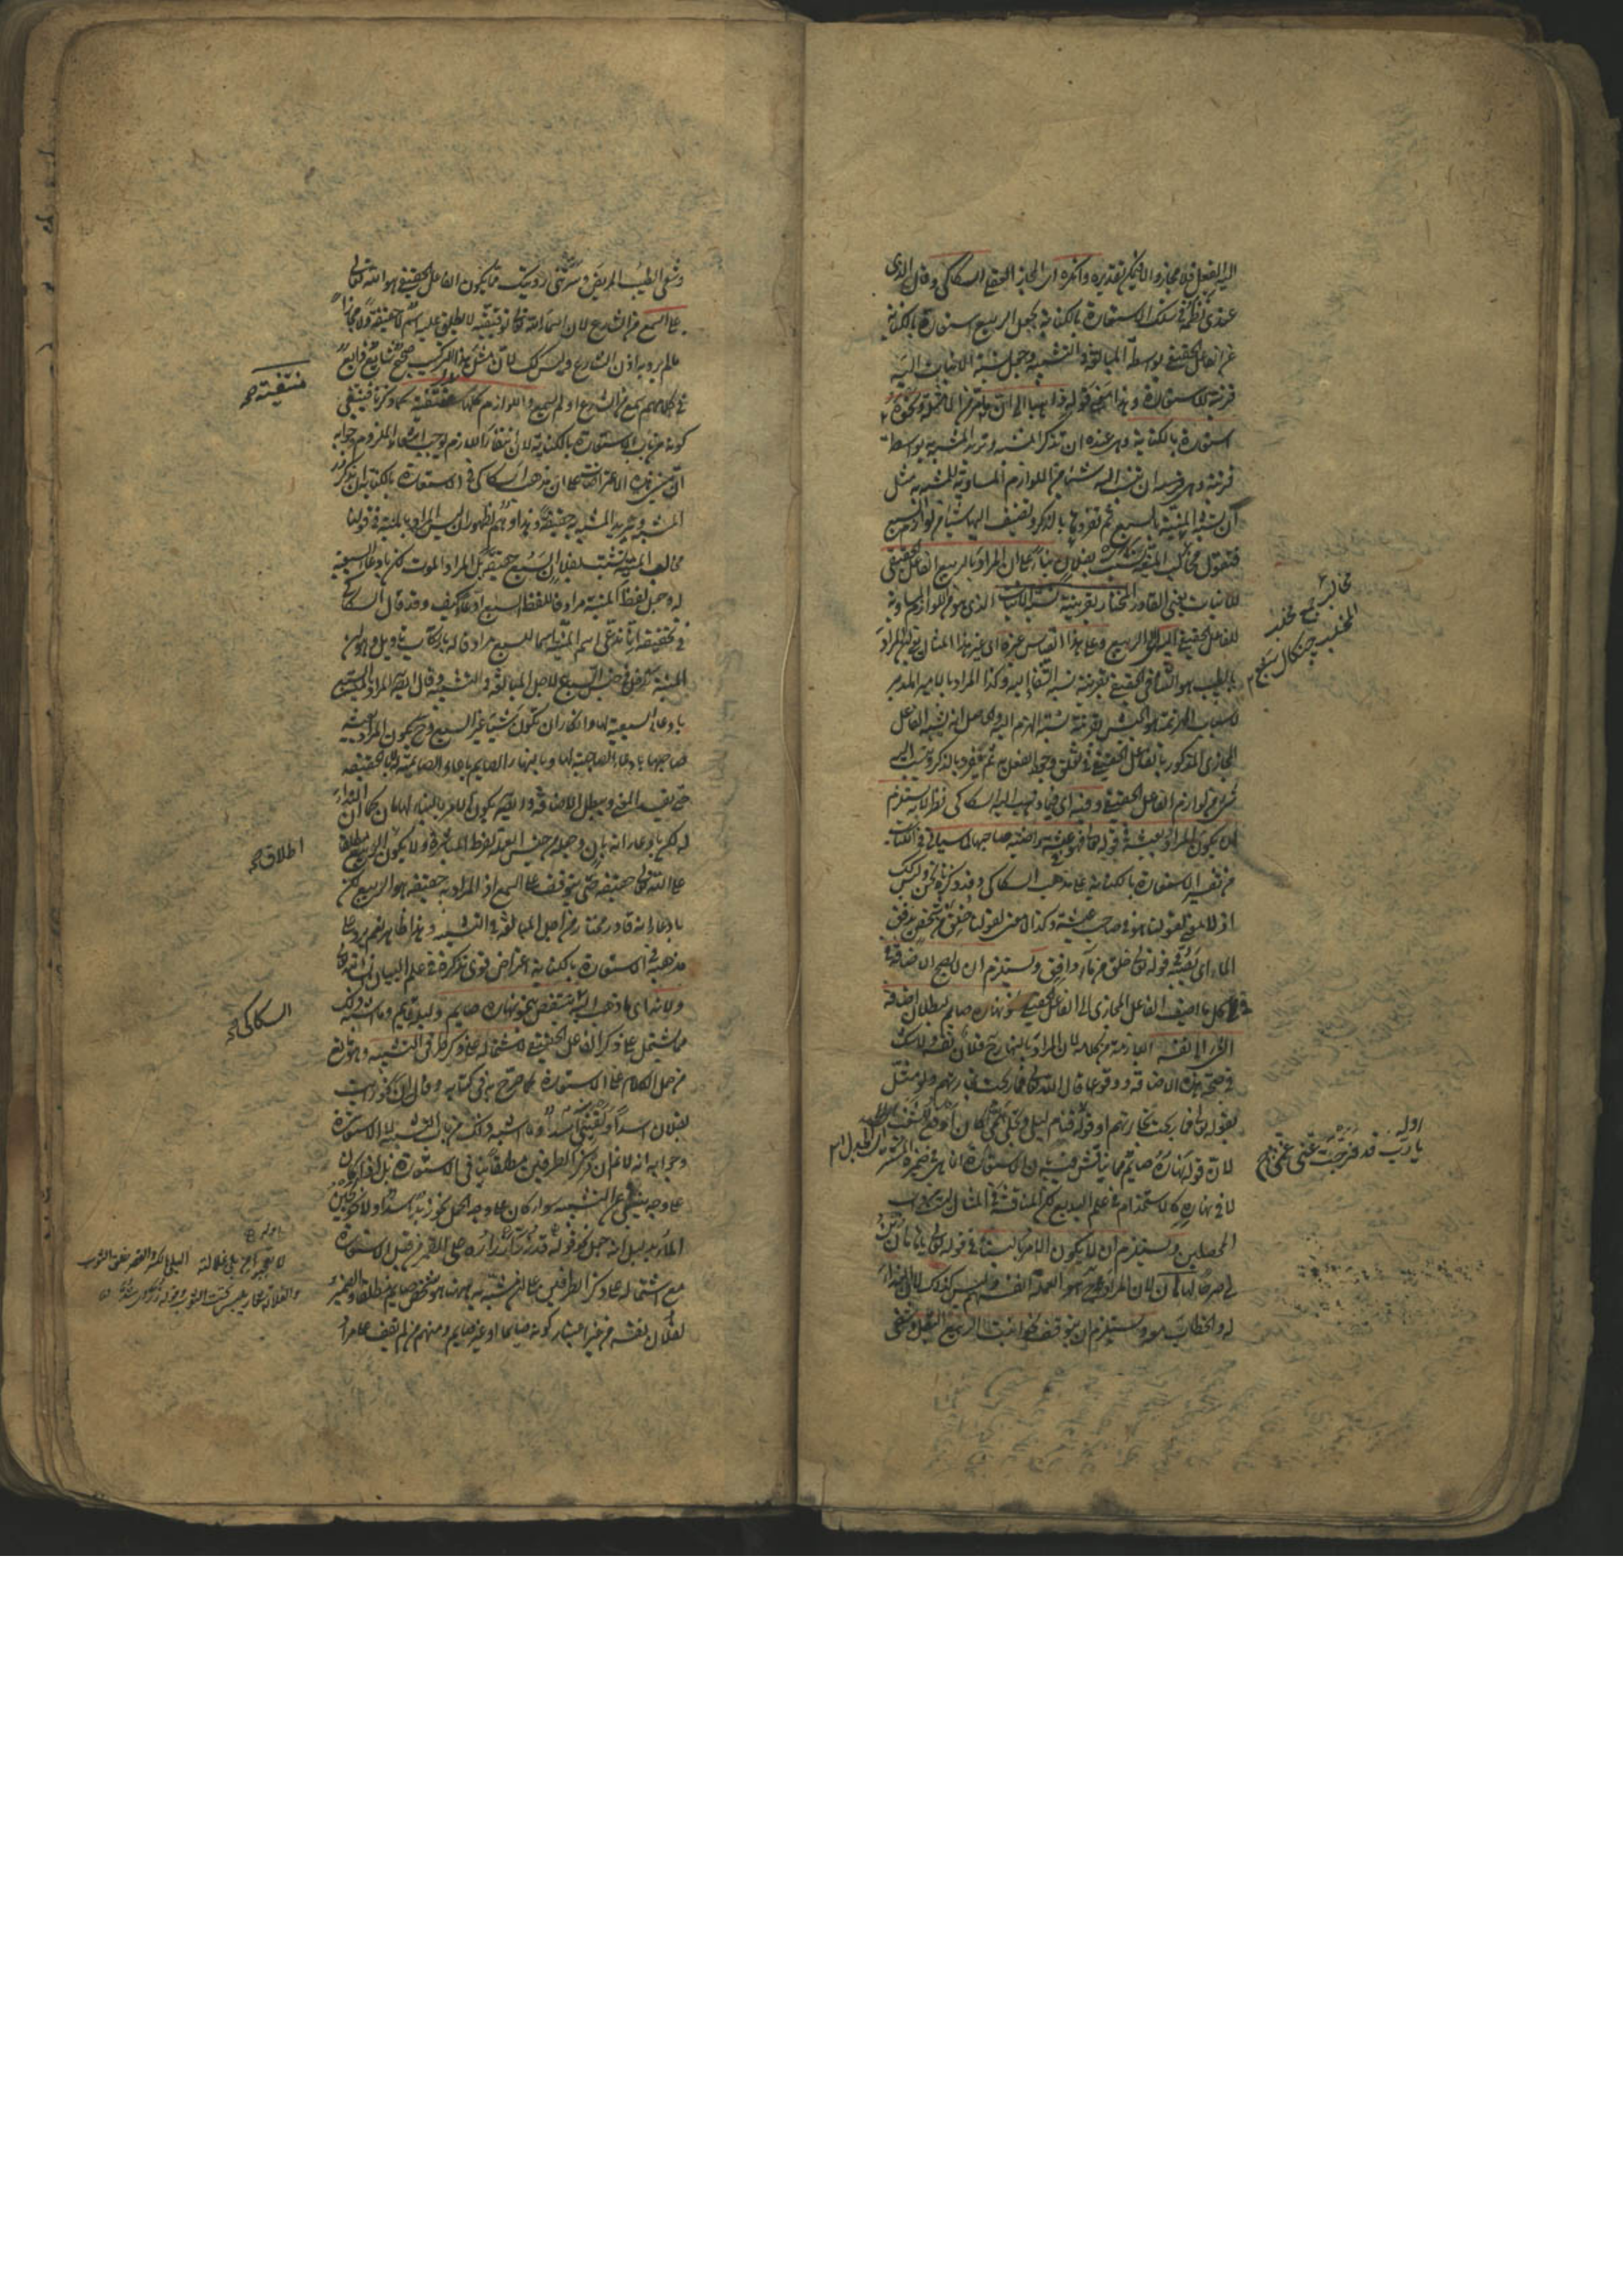 اليه الفعل فلا مجاز والا فيمكن تقديره وانكره اى المجاز العقلى السكاكى وقال الذى
عندى نظمه فى سلك الاستعارة بالكناية بجعل الربيع استعارة بالكناية
عن الفاعل الحقيقى بواسطة المبالغة فى التشبيه وجعل نسبة الانبات اليه
قرينة للاستعارة وهذا معنى قوله ذاهبا الى ان ما مر من الامثلة ونحوه
استعارة بالكناية وهى عنده ان تذكر المشبه وتريد المشبه به بواسطة
قرينة وهى ان تنسب اليه شيئا من اللوازم المساوية للمشبه به مثل
ان تشبه المنية بالسبع ثم تفردها بالذكر وتضيف اليها شيئا من لوازم السبع
فتقول مخالب المنية نشبت بفلان بناء على ان المراد بالربيع الفاعل الحقيقى
للانبات يعنى القادر المختار بقرينة نسبة الانبات الذى هو من اللوازم المساوية
للفاعل الحقيقى اليه اى الى الربيع وعلى هذا القياس غيره اى غير هذا المثال يعنى ان المراد
بالطبيب هو الشافى الحقيقى بقرينة نسبة الشفاء اليه وكذا المراد بالامير المدبر
لاسباب الهزيمة هو الجيش بقرينة نسبة الهزم اليه والحاصل انه يشبه الفاعل
المجازى المذكور بالفاعل الحقيقى فى تعلق وجود الفعل به ثم يفرد بالذكر وينسب اليه
شىء من لوازم الفاعل الحقيقى وفيه اى فيما ذهب اليه السكاكى نظر لانه يستلزم
ان يكون المراد بعيشة فى قوله تعالى فهو فى عيشة راضية صاحبها لما سيأتى فى الكتاب
من تفسير الاستعارة بالكناية على مذهب السكاكى وقد ذكرناه نحن وليس كذلك
اذ لا معنى لقولنا هو فى صاحب عيشة وكذا لا معنى لقولنا خلق من شخص يدفق
الماء اى يصبه فى قوله تعالى خلق من ماء دافق ويستلزم ان لا يصح الاضافة فى
كل ما اضيف الفاعل المجازى الى الفاعل الحقيقى نحو نهاره صائم لبطلان اضافة
الشىء الى نفسه اللازمة من كلامه لان المراد بالنهار ح فلان نفسه ولا شك
فى صحة هذه الاضافة ووقوعها قال الله تعالى فما ربحت تجارتهم ولو مثل
بقوله تعالى فما ربحت تجارتهم او قوله فنام ليلى وتجلى همى كان اوقع للشغب
لان قوله نهاره صائم مما يناقش فيه بان الاستعارة انما هى فى ضميره المستتر
لا فى نهاره كالاستخدام فى علم البديع لكن المناقشة فى المثال ليست من دأب
المحصلين ويستلزم ان لا يكون الامر بالبناء فى قوله تعالى يا هامان ابن
لى صرحا لهامان لان المراد به ح هو العملة انفسهم وليس كذلك لان النداء
له والخطاب معه ويستلزم ان يتوقف نحو انبت الربيع البقل وشفى
مخالب جمع مخلب
المخلب چنكال سبع
اوله
يا رب قد فرجت عنى غمى
وشفى الطبيب المريض وسرتنى رؤيتك مما يكون الفاعل الحقيقى هو الله تعالى
على السمع من الشارع لان اسماء الله تعالى توقيفية لا يطلق عليه اسم لا حقيقة ولا مجازا
ما لم يرد به اذن الشارع وليس كذلك لان مثل هذا التركيب صحيح شائع ذائع
فى كلامهم سمع من الشرع او لم يسمع واللوازم كلها منتفية كما ذكرنا فينتفى
كونه من باب الاستعارة بالكناية لان انتفاء اللازم يوجب انتفاء الملزوم وجوابه
ان مبنى هذه الاعتراضات على ان مذهب السكاكى فى الاستعارة بالكناية ان تذكر
المشبه وتريد المشبه به حقيقة وهذا وهم لظهور ان ليس المراد بالمنية فى قولنا
مخالب المنية نشبت بفلان السبع حقيقة بل المراد الموت لكن بادعاء السبعية
له وجعل لفظ المنية مرادفا للفظ السبع ادعاء كيف وقد قال السكاكى
فى تحقيقه انا ندعى اسم المنية اسما للسبع مرادفا له بارتكاب تأويل وهو ان
المنية تدخل فى جنس السبع لاجل المبالغة فى التشبيه وقال ايضا المراد بالمنية السبع
بادعاء السبعية لها وانكار ان تكون شيئا غير السبع وح يكون المراد بعيشة
صاحبها بادعاء الصاحبية لها وبالنهار الصائم بادعاء الصائمية له لا بالحقيقة
حتى يفسد المعنى ويبطل الاضافة وايضا يكون الامر بالبناء لهامان كما ان النداء
له لكن بادعاء انه بان وجعله من جنس العملة لفرط المباشرة ولا يكون الربيع مطلقا
على الله تعالى حقيقة حتى يتوقف على السمع اذ المراد به حقيقة هو الربيع لكن
بادعاء انه قادر مختار من اجل المبالغة فى التشبيه وهذا ظاهر نعم يرد على
مذهبه فى الاستعارة بالكناية اعتراض قوى نذكره فى علم البيان ان شاء الله تعالى
ولانه اى ما ذهب اليه ينتقض بنحو نهاره صائم وليله قائم وما اشبه ذلك
مما يشتمل على ذكر الفاعل الحقيقى لاشتماله على ذكر طرفى التشبيه وهو مانع
من حمل الكلام على الاستعارة كما صرح به فى كتابه وقال ان نحو رأيت
بفلان اسدا ولقينى منه اسد وما اشبه ذلك من باب التشبيه لا الاستعارة
وجوابه انه لا نم ان ذكر الطرفين مطلقا ينافى الاستعارة بل اذا كان
على وجه ينبئ عن التشبيه سواء كان على وجه الحمل نحو زيد اسد او لا نحو لجين
الماء بدليل انه جعل نحو قوله قد زر ازراره على القمر من قبيل الاستعارة
مع اشتماله على ذكر الطرفين على ان المشبه به ههنا هو شخص صائم مطلقا والضمير
لفلان نفسه من غير اعتبار كونه صائما او غير صائم ومنهم من لم يقف على مراد
منتفية صح
اطلاق صح
السكاكى صح
اوله
لا تعجبوا من بلى غلالته